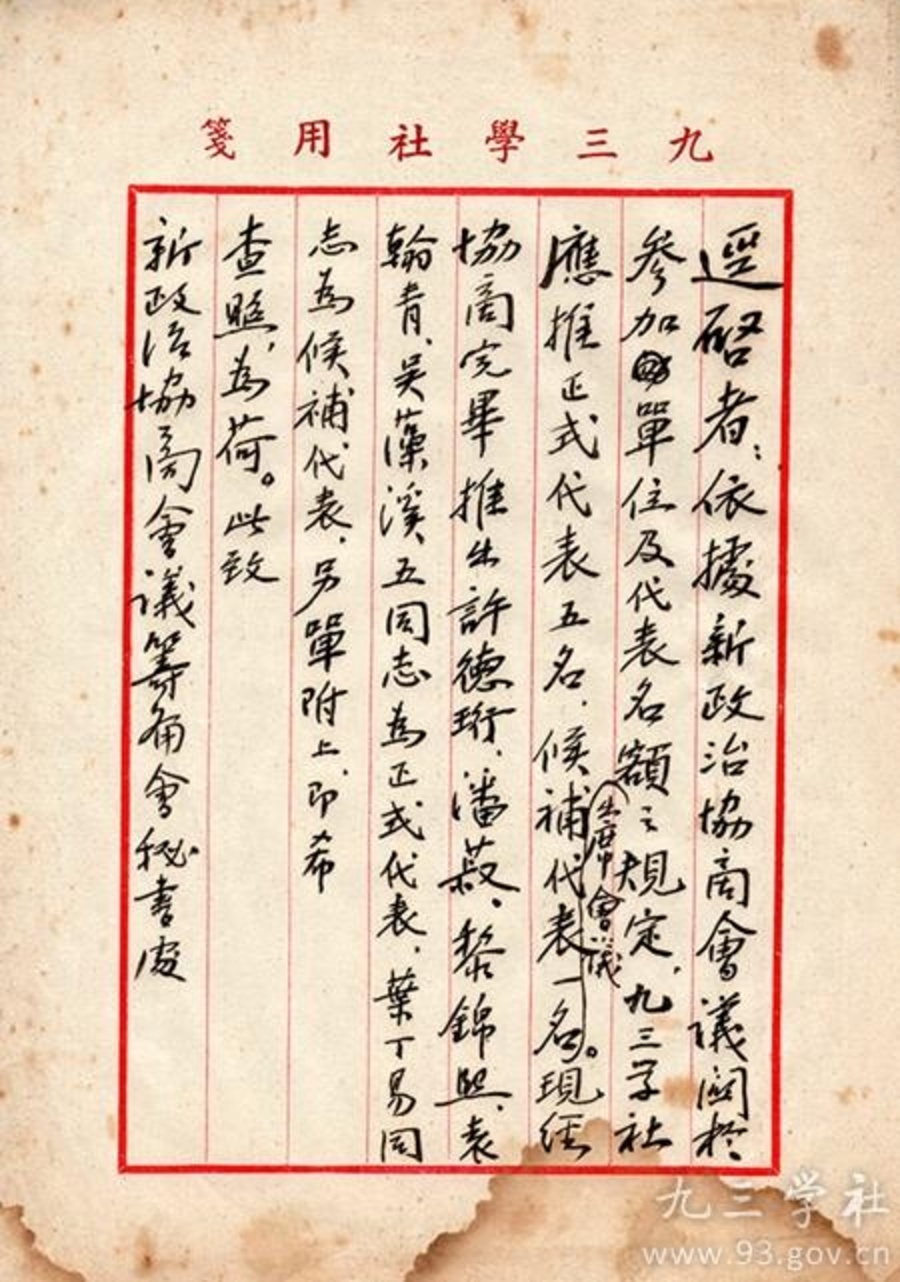 九三學社用箋
逕啓者:依據新政治協商會議關於
參加單位及代表名額之規定,九三学社
應推正式代表五名,候補代表一名。現經
出席會議
協商完畢推出許德珩、潘菽、黎錦熙、袁
翰青、吴藻溪五同志為正式代表,葉丁易同
志為候補代表,另單附上,即希
查照為荷。此致
新政治協商會議籌备會秘書處
九三学社
www.93.gov.cn